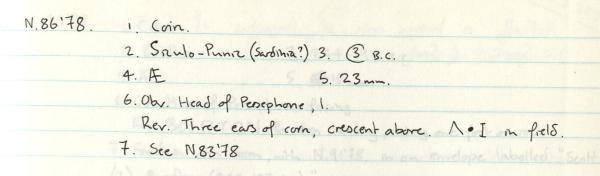 N.86'78. 1. Coin.
2. Siculo-Punic (Sardinia?) 3. ③ B.C.
4. Æ 5. 23mm.
6. Obv. Head of Persephone, l.
Rev. Three ears of corn, crescent above. Λ•I in field.
7. See N.83'78